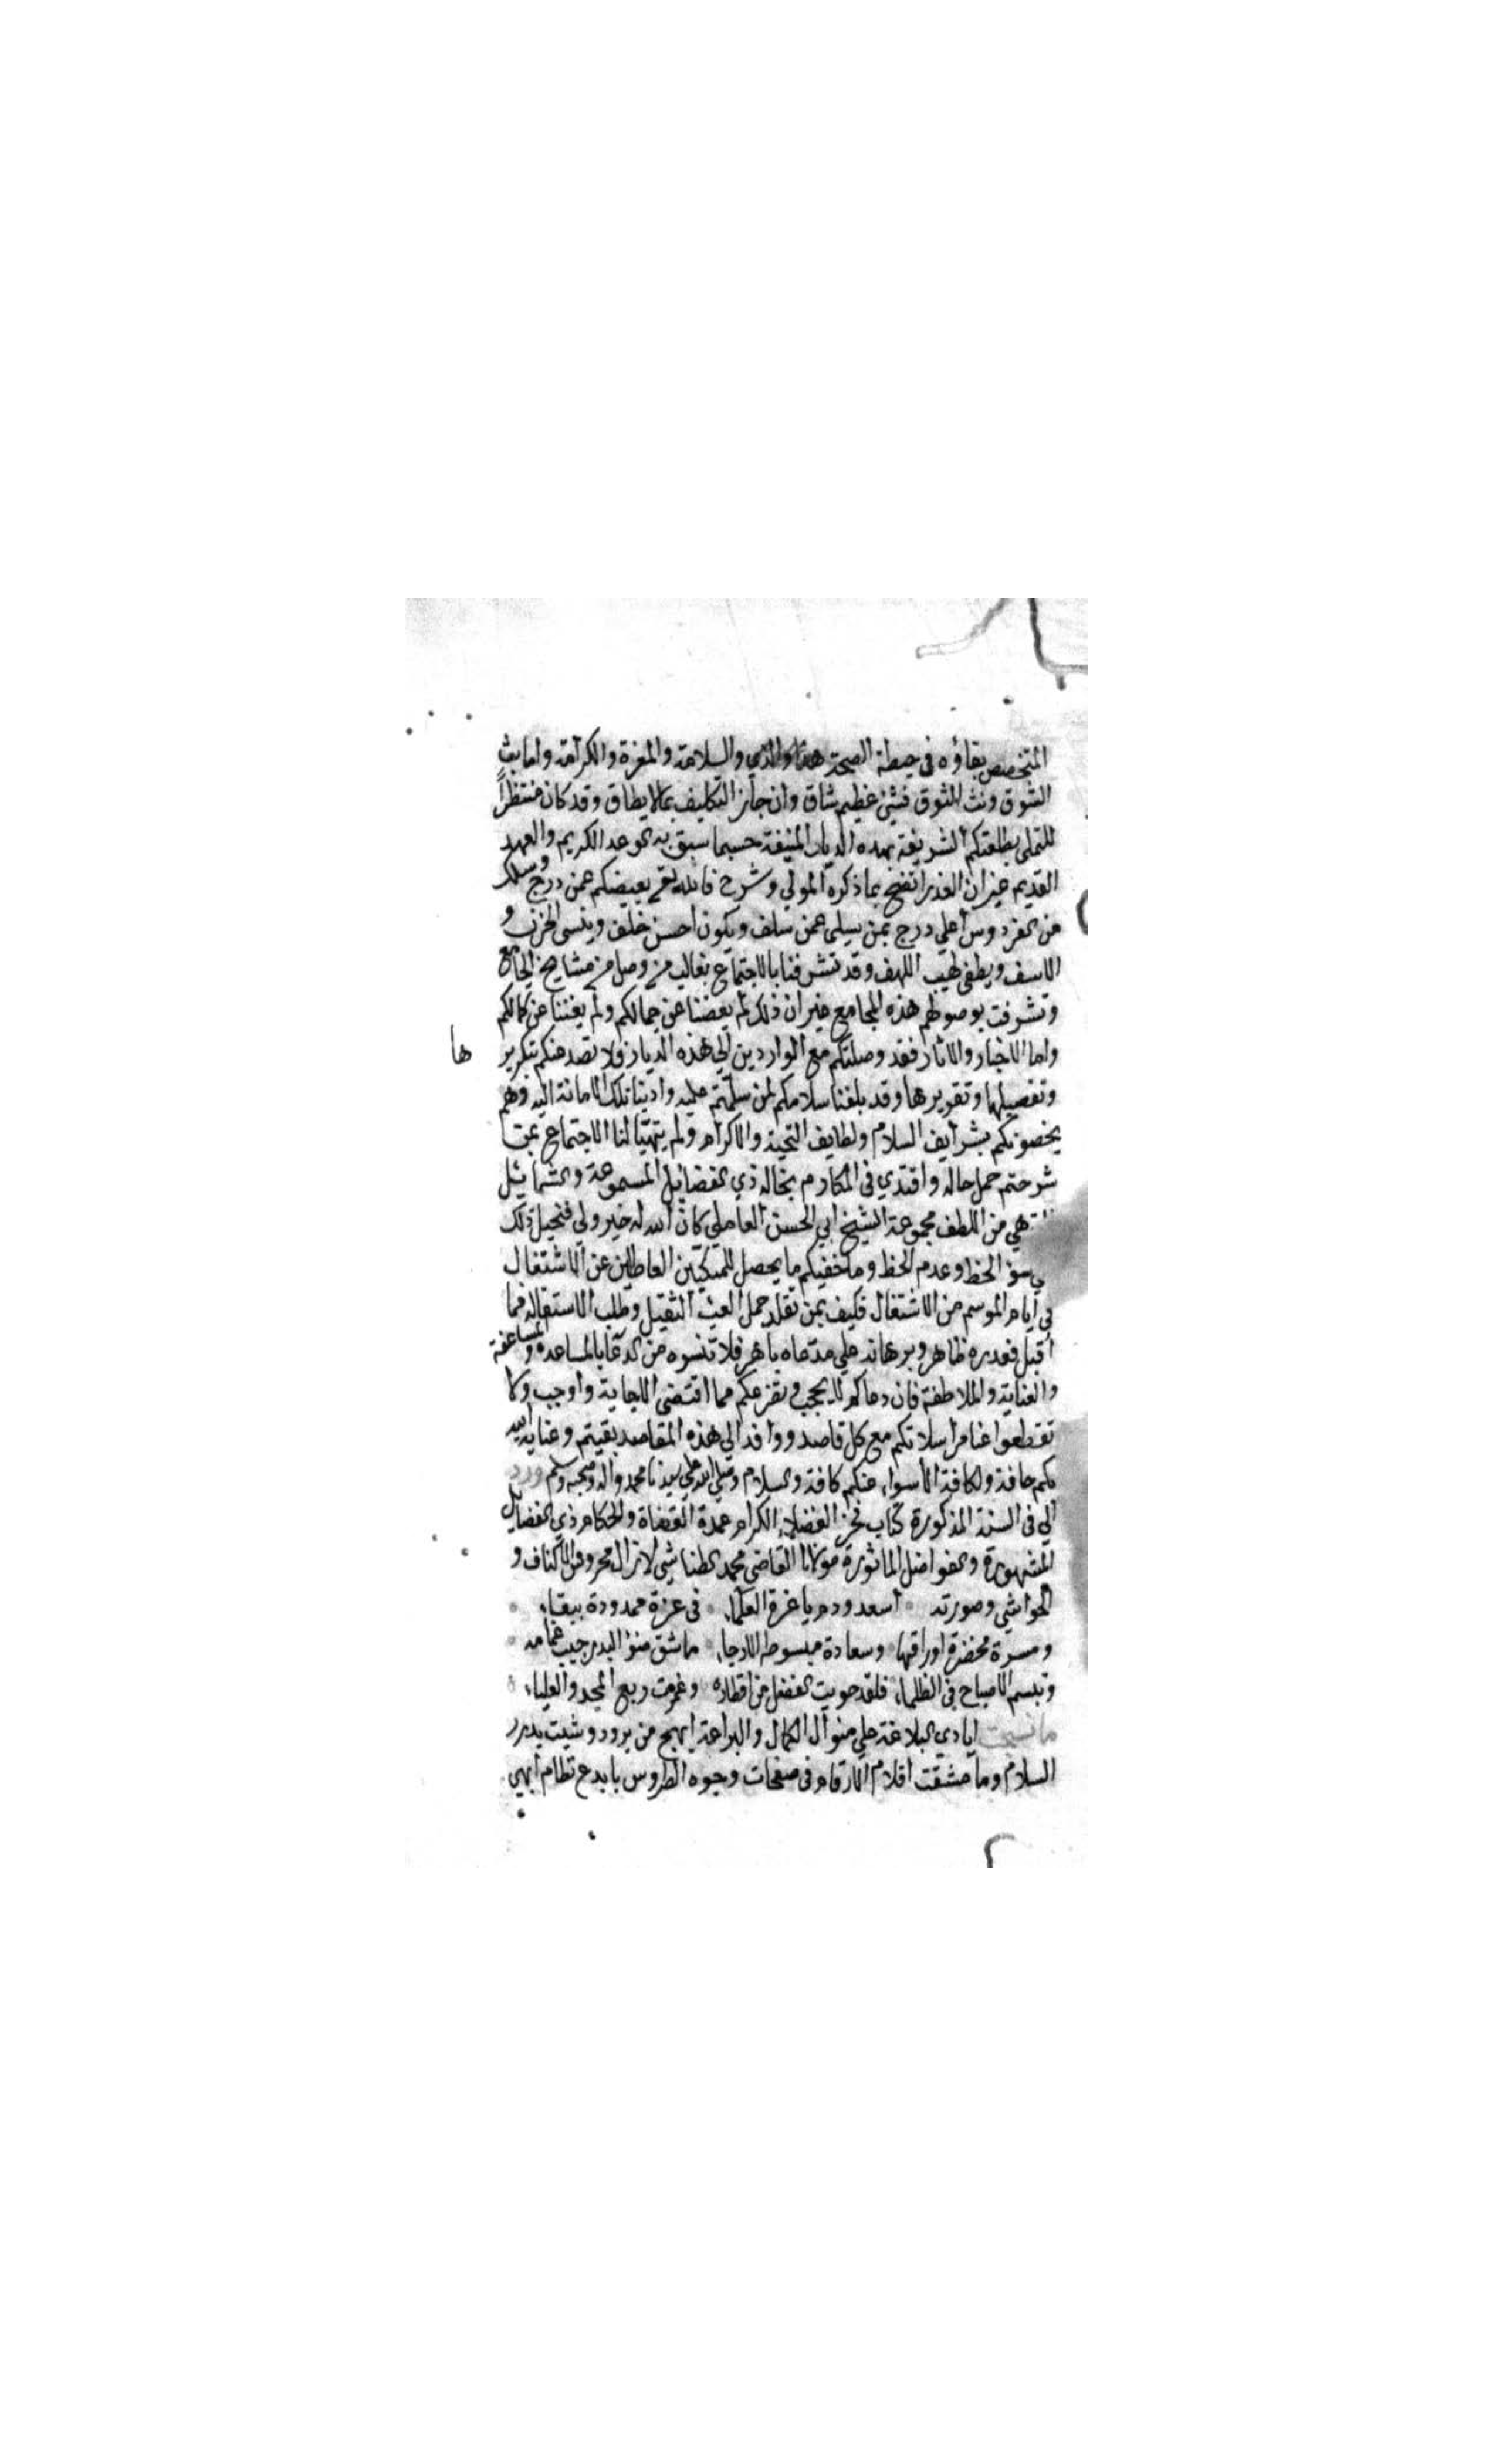 المتخصص بقاؤه في حيطة الصحة هذا والذي والسلامة والمعزة والكرامة واما بث
الشوق ونث المثوق فشئ عظيم شاق وان جاز التكليف بما لا يطاق وقد كان منتظراً
للتملى بطلعتكم الشريفة بهذه الديار المنيفة حسبما سبق به الوعد الكريم والعهد
القديم غير ان العذر اتضح بما ذكره المولي وشرح فالله تع يعيضكم عمن درج وسلك
من الفردوس أعلي درج بمن يسلى عمن سلف ويكون احسن خلف وينسى الحزن و
الاسف ويطفى لهيب اللهف وقد تشرفنا بالاجتماع بغالب من وصل من مشايخ الجامع
وتشرفت بوصولهم هذه المجامع غير ان ذلك لم يعضنا عن جمالكم ولم يغننا عن كمالكم
واما الاخبار والاثار فقد وصلتكم مع الواردين الي هذه الديار فلا نصدعكم بتكرير
ها
وتفصيلها وتقريرها وقد بلغنا سلامكم لمن سلمتم عليه وادينا تلك الامانة اليه وهم
يخصونكم بشرايف السلام ولطايف التحية والاكرام ولم يتهيّا لنا الاجتماع بمن
شرحتم حمل حاله واقتدي في المكارم بخاله ذي الفضايل المسموعة والشمايل
هي من اللطف مجموعة الشيخ ابي الحسن العاملي كان الله له خير ولي فنحيل ذلك
سؤ الحظ وعدم الحظ وما خفيكم ما يحصل للمكيين العاطلين عن الاشتغال
في أيام الموسم من الاشتغال فكيف بمن تقلد حمل العبث الثقيل وطلب الاستقالة فما
أقيل فعدره ظاهر وبرهانه علي مدعاه باهر فلا تنسوه من الدعا بالمساعده والمساعفة
والعناية والملاطفة فان دعاكم لا يحجب وتضرعكم مما اقتضى الاجابة واوجب ولا
تقطعوا عنا مراسلاتكم مع كل قاصد ووافد الي هذه المقاصد بقيتم وعناية الله
بكم حافة ولكافة الأسواء عنكم كافة والسلام وصلي الله علي سيدنا محمد واله وصحبه وسلم ورد
الي في السنة المذكورة كتاب فخر الفضلاء الكرام عمدة القضاة والحكام ذي الفضايل
المشهورة والفواضل الماثورة مولانا القاضي محمد الطناشي لا زال محروس الاكناف و
الحواشي وصورته أسعد ودم يا غرة العلماء في عزة ممدودة ببقاء
ومسرة مخضرة اوراقها وسعادة مبسوطة الارجاء ما شق ضوء البدر جيب غمامه
وتبسم الاصباح في الظلماء فلقد حويت الفضل من اقطاره وعمرت ربع المجد والعلياء
ما نسجت ايادي البلاغة علي منوال الكمال والبراعة ابهج من برود وشيت بدرر
السلام وما مشقت اقلام الارقام في صفحات وجوه الطروس بابدع نظام أبهي